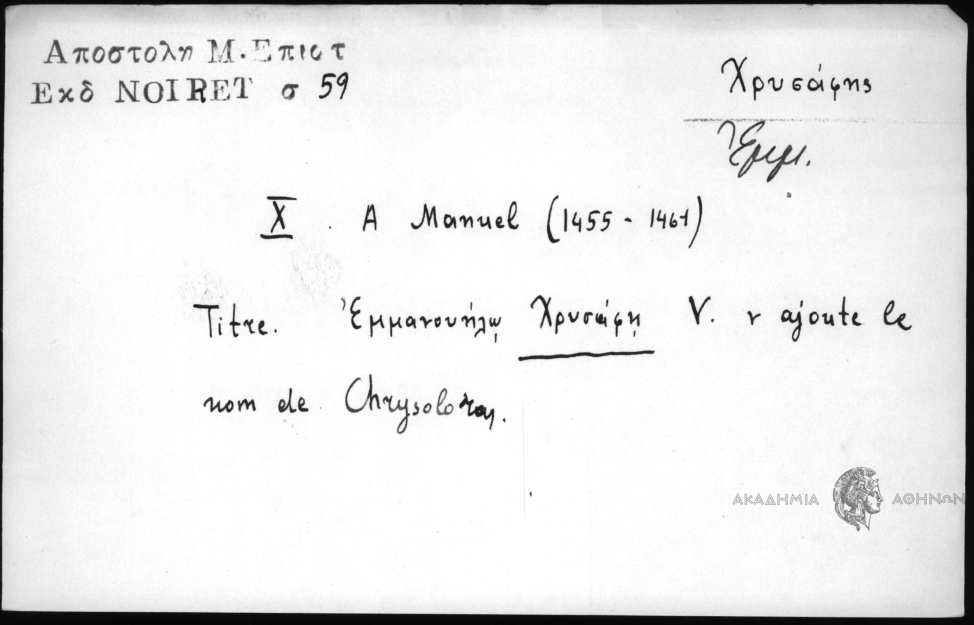 Αποστολη Μ. Επιστ
Εκδ NOIRET σ 59
Χρυσάφης
Ἐμμ.
X . A Manuel (1455 - 1461)
Titre. Ἐμμανουήλῳ Χρυσάφῃ V. r ajoute le
nom de Chrysoloras.
ΑΚΑΔΗΜΙΑ ΑΘΗΝΩΝ